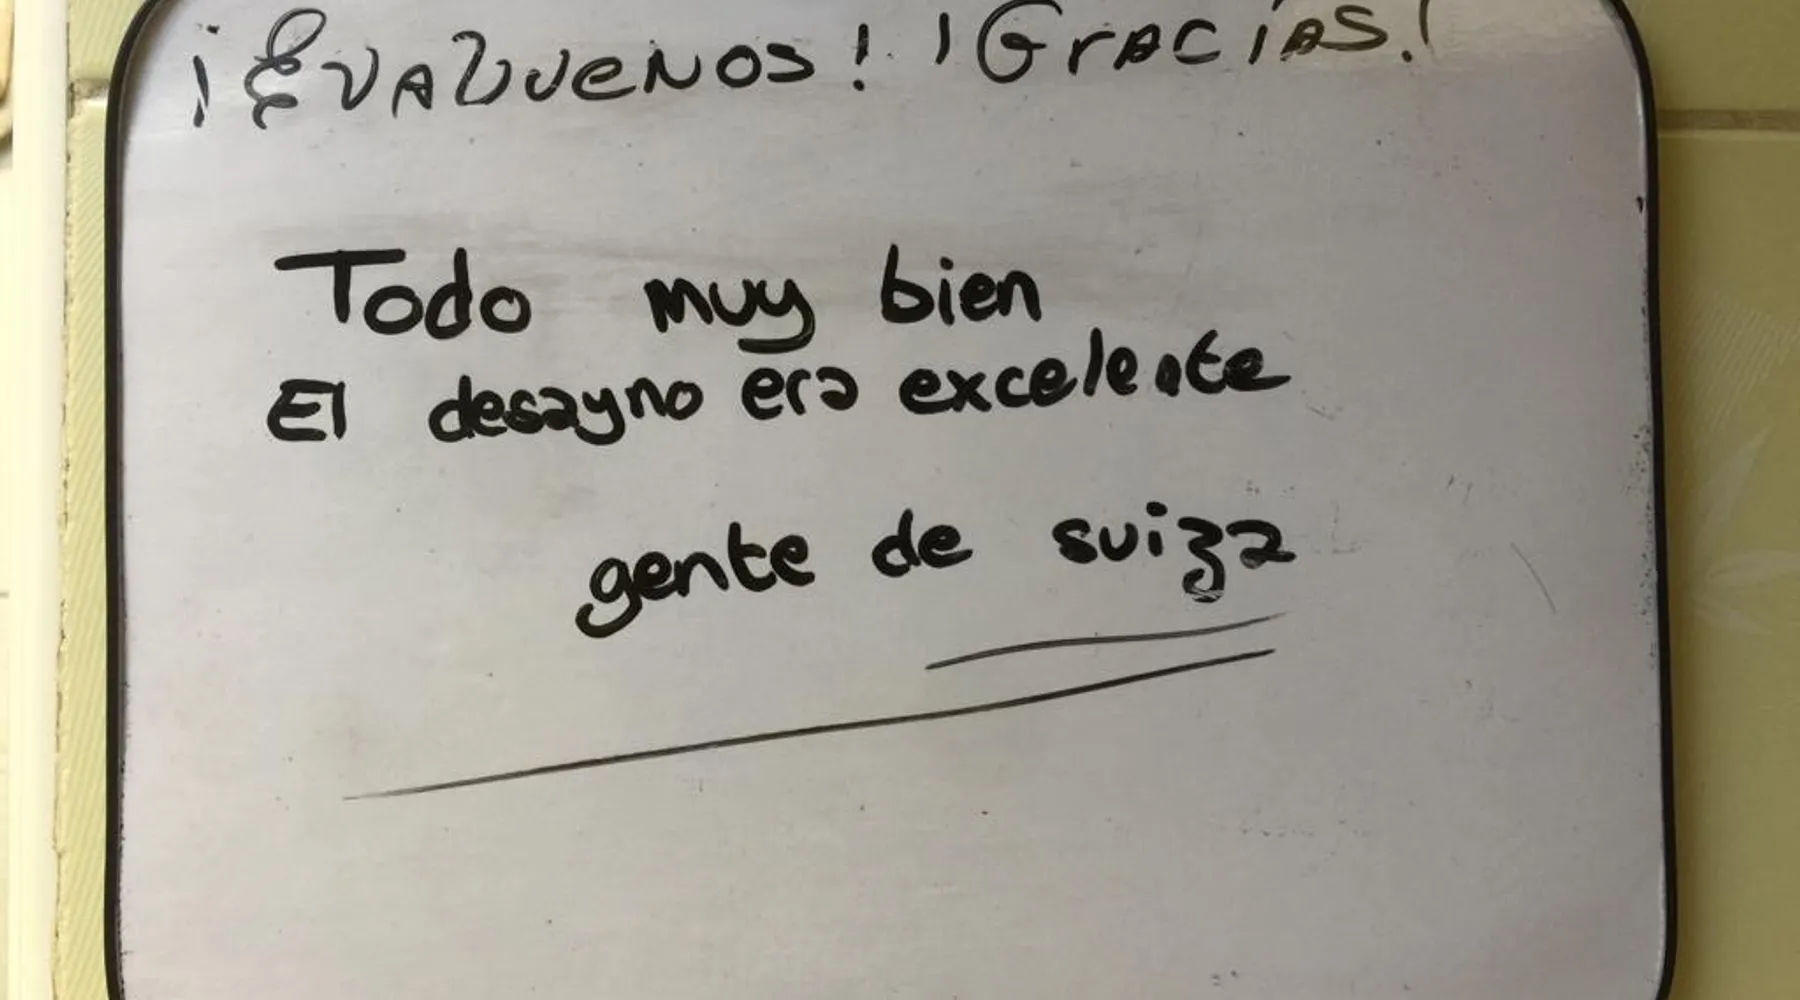 ¡EVALUENOS! ¡GrACiAS!
Todo muy bien
El desayno era excelente
gente de suiza